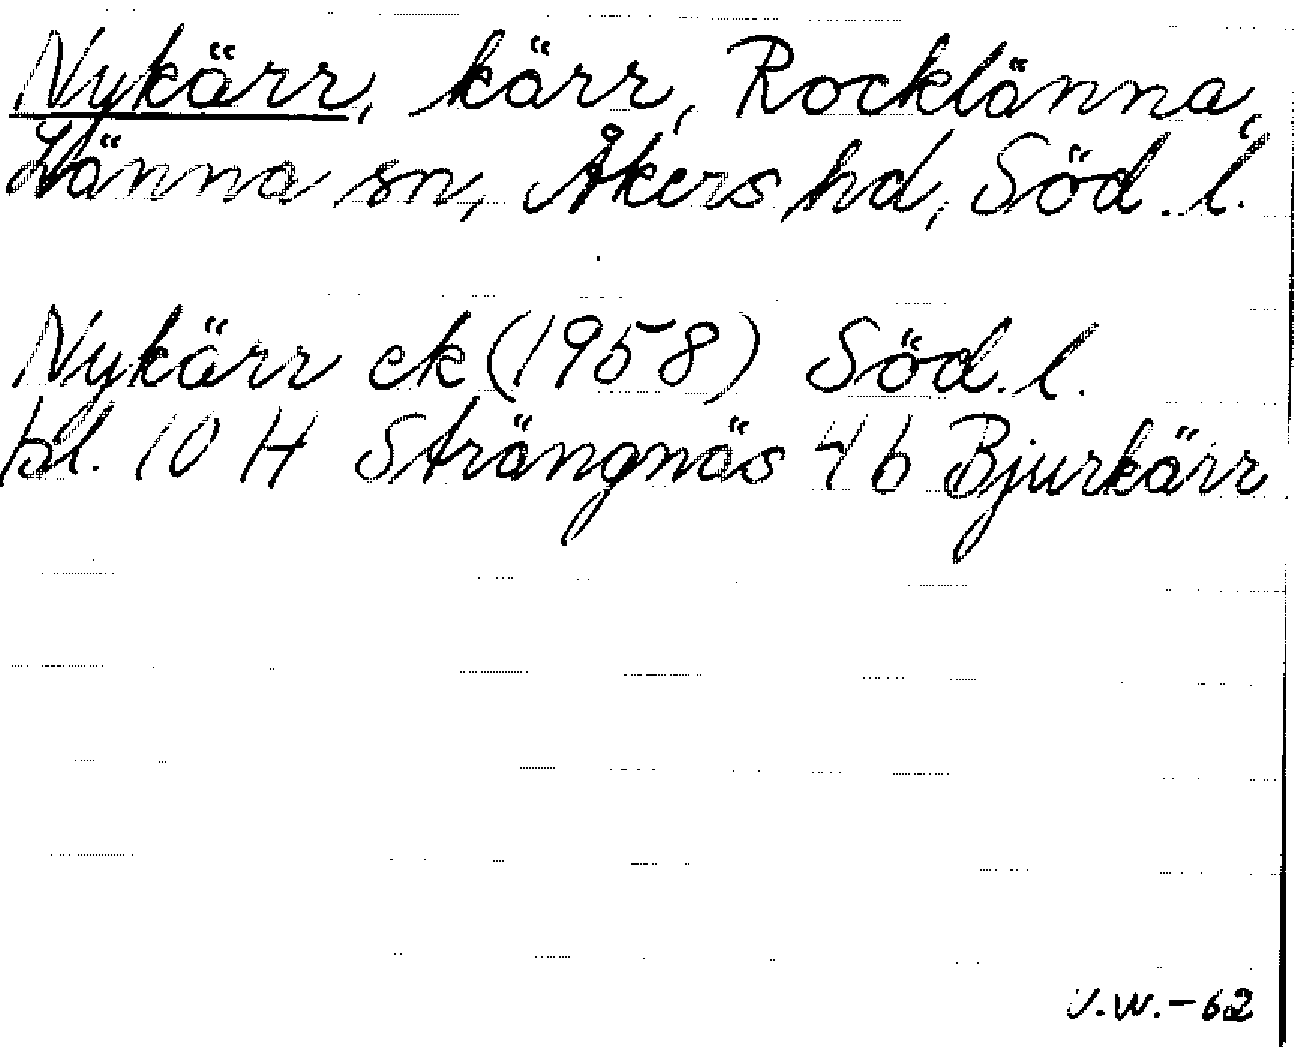 Nykärr, kärr, Rocklänna,
Länna sn, Åkers hd, Söd. l.
Nykärr ek (1958) Söd. l.
bl. 10 H Strängnäs 4b Bjurkärr
V.W.-62